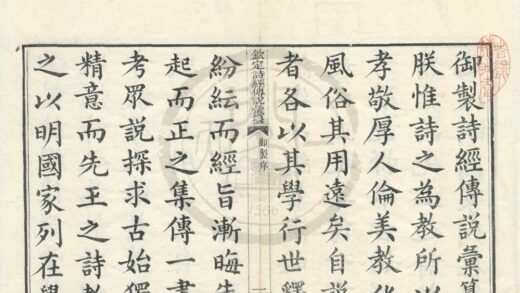 御製詩經傳說彙纂
朕惟詩之為教所以
孝敬厚人倫美教化
風俗其用遠矣自說
者各以其學行世釋
欽定詩經傳說彙纂
御製序
一
紛紜而經旨漸晦朱
起而正之集傳一書
考眾說探求古始獨
精意而先王之詩教
之以明國家列在學